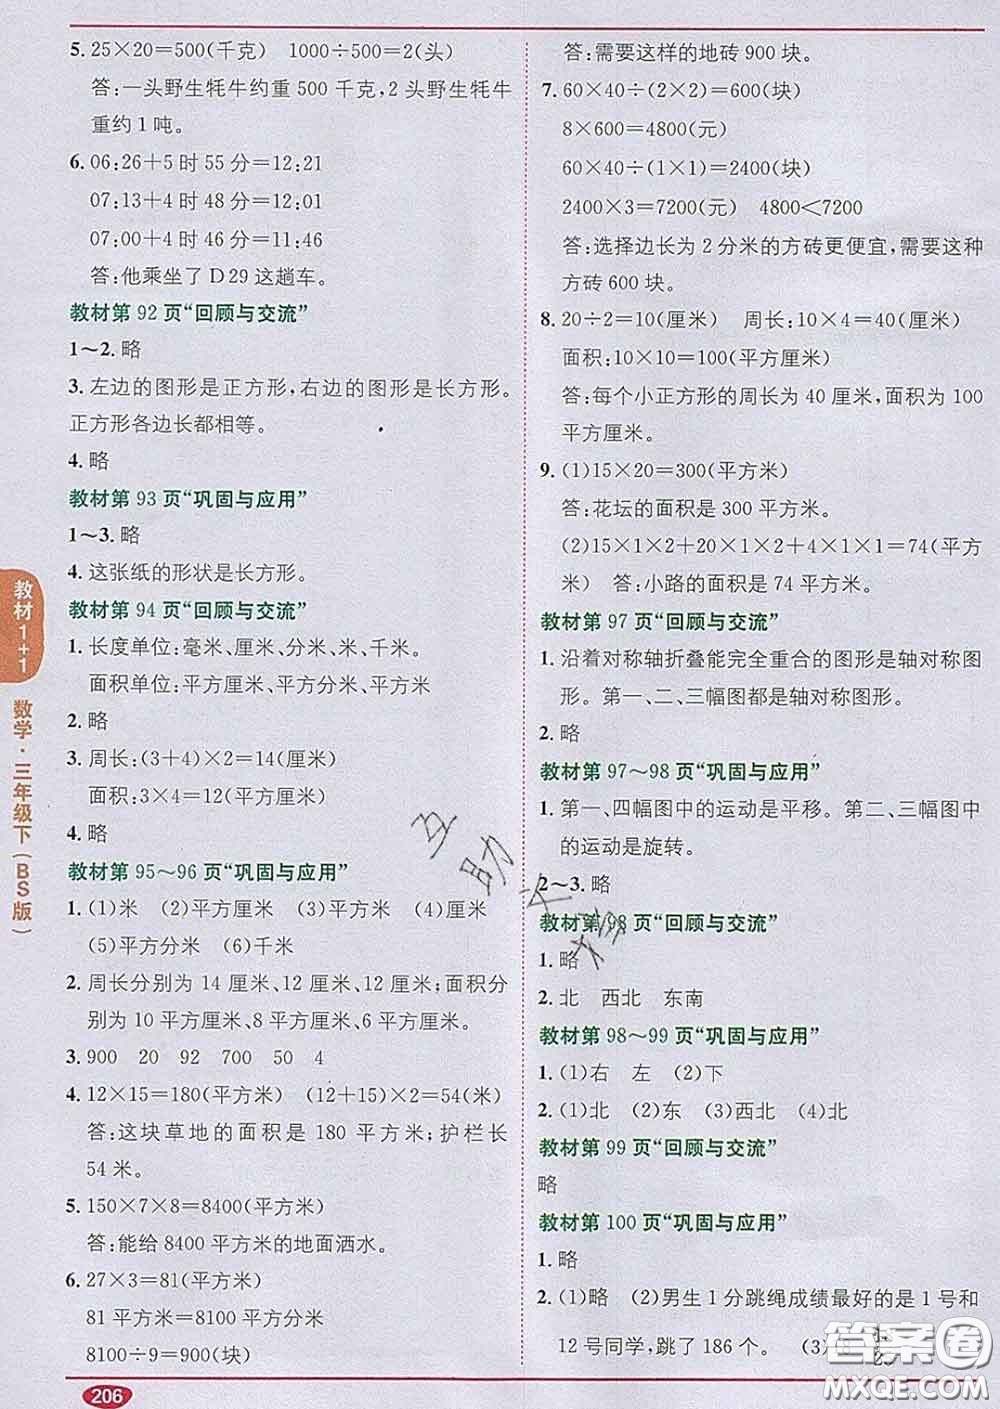 5. 25×20=500(千克) 1000÷500=2(头)
答:一头野生牦牛约重 500 千克,2 头野生牦牛
重约 1 吨。
6. 06:26+5 时 55 分=12:21
07:13+4 时 48 分=12:01
07:00+4 时 46 分=11:46
答:他乘坐了 D29 这趟车。
教材第 92 页“回顾与交流”
1~2. 略
3. 左边的图形是正方形,右边的图形是长方形。
正方形各边长都相等。
4. 略
教材第 93 页“巩固与应用”
1~3. 略
4. 这张纸的形状是长方形。
教材第 94 页“回顾与交流”
1. 长度单位:毫米、厘米、分米、米、千米。
面积单位:平方厘米、平方分米、平方米
2. 略
3. 周长:(3+4)×2=14(厘米)
面积:3×4=12(平方厘米)
4. 略
教材第 95~96 页“巩固与应用”
1. (1)米 (2)平方厘米 (3)平方米 (4)厘米
(5)平方分米 (6)千米
2. 周长分别为 14 厘米、12 厘米、12 厘米;面积分
别为 10 平方厘米、8 平方厘米、6 平方厘米。
3. 900 20 92 700 50 4
4. 12×15=180(平方米) (12+15)×2=54(米)
答:这块草地的面积是 180 平方米;护栏长
54 米。
5. 150×7×8=8400(平方米)
答:能给 8400 平方米的地面洒水。
6. 27×3=81(平方米)
81 平方米=8100 平方分米
8100÷9=900(块)
答:需要这样的地砖 900 块。
7. 60×40÷(2×2)=600(块)
8×600=4800(元)
60×40÷(1×1)=2400(块)
2400×3=7200(元) 4800<7200
答:选择边长为 2 分米的方砖更便宜,需要这种
方砖 600 块。
8. 20÷2=10(厘米) 周长:10×4=40(厘米)
面积:10×10=100(平方厘米)
答:每个小正方形的周长为 40 厘米,面积为 100
平方厘米。
9. (1)15×20=300(平方米)
答:花坛的面积是 300 平方米。
(2)15×1×2+20×1×2+4×1×1=74(平方
米) 答:小路的面积是 74 平方米。
教材第 97 页“回顾与交流”
1. 沿着对称轴折叠能完全重合的图形是轴对称图
形。第一、二、三幅图都是轴对称图形。
2. 略
教材第 97~98 页“巩固与应用”
1. 第一、四幅图中的运动是平移。第二、三幅图中
的运动是旋转。
2~3. 略
教材第 98 页“回顾与交流”
1. 略
2. 北 西北 东南
教材第 98~99 页“巩固与应用”
1. (1)右 左 (2)下
2. (1)北 (2)东 (3)西北 (4)北
教材第 99 页“回顾与交流”
略
教材第 100 页“巩固与应用”
1. 略
2. (1)略 (2)男生 1 分跳绳成绩最好的是 1 号和
12 号同学,跳了 186 个。 (3)
教材1+1
数学·三年级下(BS版)
206
答案圈
MXQE.COM